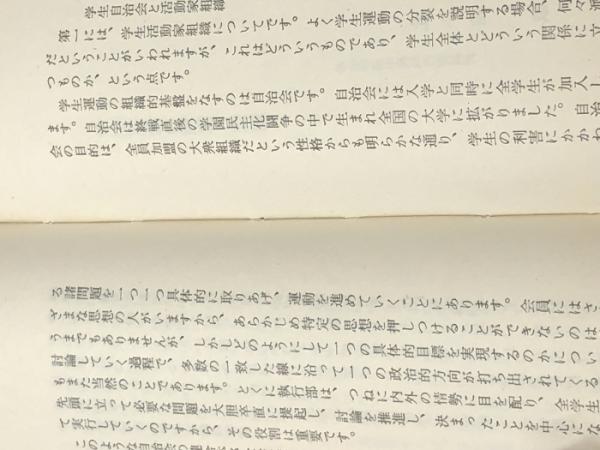 学生自治会と活動家組織
第一には、学生活動家組織についてです。よく学生運動の分裂を説明する場合、何々派
だということがいわれますが、これはどういうものであり、学生全体とどういう関係に立
つものか、という点です。
学生運動の組織的基盤をなすのは自治会です。自治会には入学と同時に全学生が加入し
ます。自治会は終戦直後の学園民主化闘争の中で生まれ全国の大学に拡がりました。自治
会の目的は、全員加盟の大衆組織だという性格からも明らかな通り、学生の利害にかかわ
る諸問題を一つ一つ具体的に取りあげ、運動を進めていくことにあります。会員にはさ
ざまな思想の人がいますから、あらかじめ特定の思想を押しつけることができないのは
うまでもありませんが、しかしどのようにして一つの具体的目標を実現するのかについ
討論していく過程で、多数の一致した線に沿って一つの政治的方向が打ち出されてくる
もまた当然のことであります。とくに執行部は、つねに内外の情勢に目を配り、全学生
先頭に立って必要な問題を大胆卒直に提起し、討論を推進し、決まったことを中心にな
て実行していくのですから、その役割は重要です。
このような自治会の連合